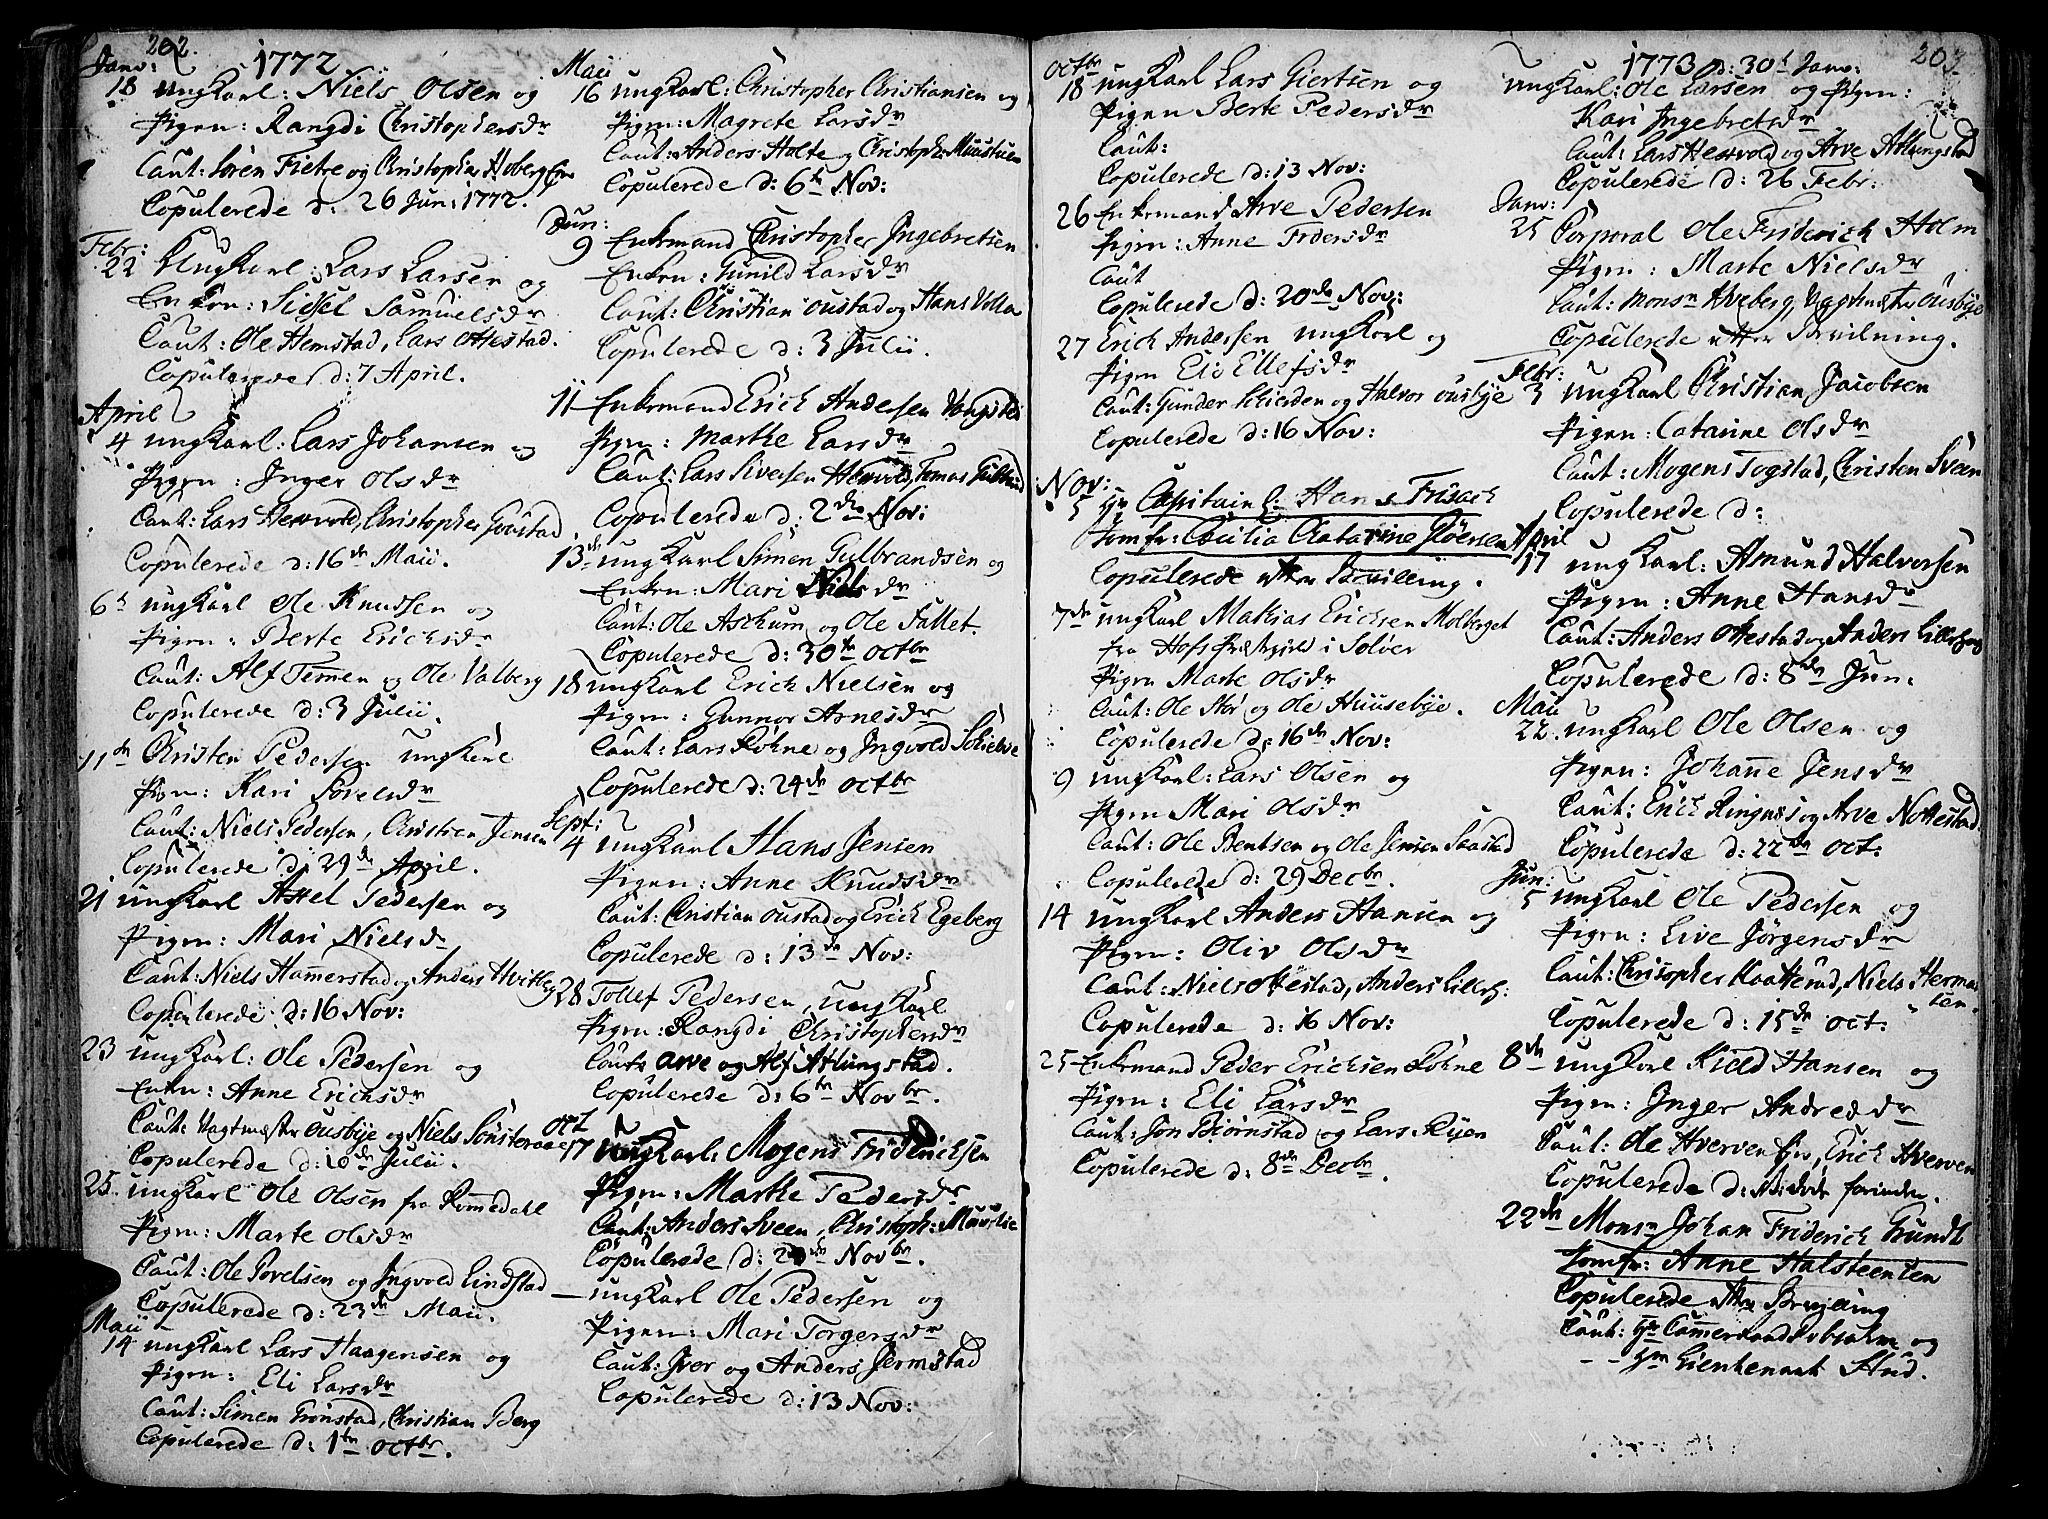 202.
1772
Janv:
18 ungKarl: Niels Olsen og
Pigen: Rangdi Christophersdr
Caut: Sören Fietre og Christopher Hoberg
Copulerede d: 26 Jun: 1772.
Febr:
22 UngKarl: Lars Larsen og
Enken: Sidsel Samuelsdr
Caut: Ole Hemstad, Lars Ottestad.
Copulerede d: 7 April.
April
4 ungKarl: Lars Johansen og
Pigen: Inger Olsdr
Caut: Lars Hervold, Christopher Goustad
Copulerede d: 16de Maii.
6t ungKarl Ole Knudsen og
Pigen: Berte Ericksdr
Caut: Alf Temen og Ole Valberg
Copulerede d: 3 Julii.
11de Christen Pedersen ungKarl
Pigen: Kari Povelsdr
Caut: Niels Pedersen, Christen Jensen
Copulerede d: 29de April.
21 ungKarl Axel Pedersen og
Pigen: Mari Nielsdr
Caut: Niels Hammerstad og Anders Hvitberg
Copulerede d: 16 Nov:
23 ungKarl: Ole Pedersen og
Enken: Anne Ericksdr
Caut: Vagtmester Ousbye og Niels Sönsteraae
Copulerede d: 10de Julii.
25 ungKarl Ole Olsen fra Rommedahl
Pigen: Marte Olsdr
Caut: Ole Povelsen og Ingvold Lindstad
Copulerede d: 23de Maii.
Maii
14 ungKarl Lars Haagensen og
Pigen: Eli Larsdr
Caut: Simen Grönstad, Christian Berg
Copulerede d: 1te Octbr.
Maii
16 ungKarl: Christopher Christiansen og
Pigen: Magrete Larsdr
Caut: Anders Holte og Christoph: Muustuen
Copulerede d: 6te Nov:
Jun:
9 Enkemand Christopher Ingebretsen
Enken: Gunild Larsdr
Caut: Christian Oustad og Hans Volla
Copulerede d: 3 Julii.
11 Enkemand Erich Andersen Vongsteı
Pigen: Marthe Larsdr
Caut: Lars Siversen Hervold, Tomas Gullund
Copulerede d: 2den Nov:
13de ungKarl Simen Gulbrandsen og
Enken: Mari Nielsdr
Caut: Ole Askum og Ole Fallet.
Copulerede d: 30te Octbr
18 ungKarl Erich Nielsen og
Pigen: Gunnor Arnesdr
Caut: Lars Köhne og Ingvold Schielve
Copulerede d: 24de Octbr
Sept:
4 ungKarl Hans Jensen
Pigen: Anne Knudsdr
Caut: Christian Oustad og Erich Egeberg
Copulerede d: 13de Nov:
28 Tollef Pedersen, ungKarl
Pigen: Rangdi Christophersdr
Caut: Arve og Alf Atlungstad.
Copulerede d: 6te Novbr.
Oct
17 ungKarl: Mogens Friderichsen
Pigen: Marthe Pedersdr
Caut: Anders Sveen, Christoph: Muustue
Copulerede d: 20de Novbr.
— ungKarl Ole Pedersen og
Pigen: Mari Torgersdr
Caut: Iver og Anders Jermstad
Copulerede d: 13 Nov:
Octbr
18 ungKarl Lars Giertsen og
Pigen Berte Pedersdr
Caut:
Copulerede d: 13 Nov:
26 Enkemand Arve Pedersen
Pigen: Anne Pedersdr
Caut
Copulerede d: 20de Nov:
27 Erich Andersen ungKarl og
Pigen Eli Ellefsdr
Caut: Gunder Schierden og Halvor Ousbye
Copulerede d: 16 Nov:
Nov:
5 Hr Capitain C: Hans Frisach
Jomfr: Cecilia Catarine Flöersen
Copulerede efter Bevilling.
7de ungKarl Mathias Erichsen Molberget
fra Hofs Præstegield i Solöer
Pigen Marte Olsdr
Caut: Ole Stör og Ole Huusebye.
Copulerede d: 16de Nov:
9 ungKarl: Lars Olsen og
Pigen Mari Olsdr
Caut: Ole Bentsen og Ole Jensen Saastad
Copulerede d: 29 Decbr.
14 ungKarl Anders Hansen og
Pigen: Oliv Olsdr
Caut: Niels Ottestad, Anders Lillehg:
Copulerede d: 16 Nov:
25 Enkemand Peder Erichsen Köhne
Pigen: Eli Larsdr
Caut: Jon Biörnstad og Lars Ryen
Copulerede d: 8de Decbr.
203.
1773 d: 30t Janv:
ungKarl: Ole Larsen og Pigen:
Kari Ingebretsdr
Caut: Lars Hervold og Arve Atlungstad
Copulerede d: 26 Febr:
Janv:
25 Corporal Ole Friderich Holm
Pigen: Marte Nielsdr
Caut: Monsr Hveberg, Vagtmester Ousbye
Copulerede efter Bevilning.
Febr:
3 ungKarl Christian Jacobsen
Pigen: Catarine Olsdr
Caut: Mogens Togstad, Christen Sveen
Copulerede d:
April
17 ungKarl: Amund Halversen
Pigen: Anne Hansdr
Caut: Anders Ottestad og Anders Lillehg
Copulerede d: 8de Jun.
Maii
22 ungKarl Ole Olsen og
Pigen: Johanne Jensdr
Caut: Erich Ringnes og Arve Nottestad
Copulerede d: 22de Oct:
Jun:
5 ungKarl Ole Pedersen og
Pigen: Live Jörgensdr
Caut: Christopher Kaatterud, Niels Herman
sen.
Copulerede d: 15de Oct:
8de ungKarl Kield Hansen og
Pigen: Inger Andreædr
Caut: Ole Hverven, Erich Hverven
Copulerede d:
22de Monsr Johan Friderich Grundt
Jomfr: Anne Halsteensen
Copulerede efter Bevilling
Caut: Hr Cammerraad og
- - Hr Lieutenant Stud.